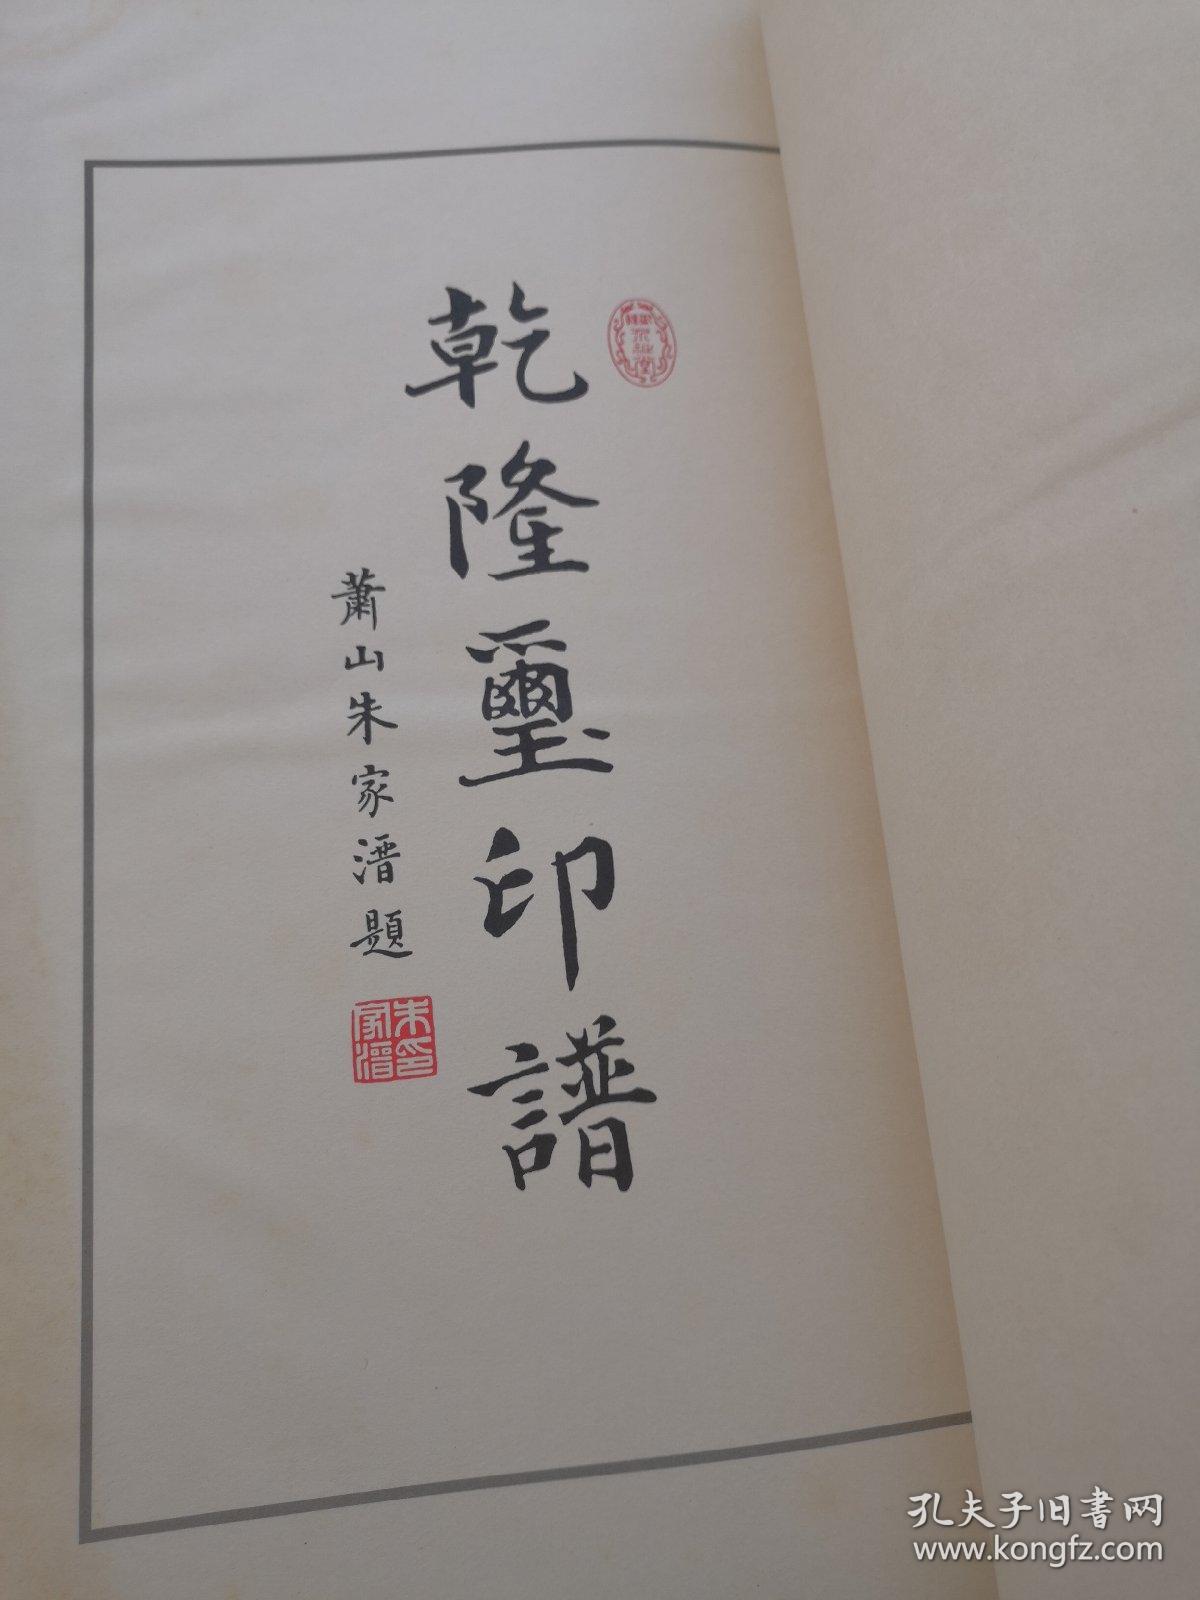 乾隆璽印譜
蕭山朱家溍題
朱家溍印
孔夫子旧书网
www.kongfz.com